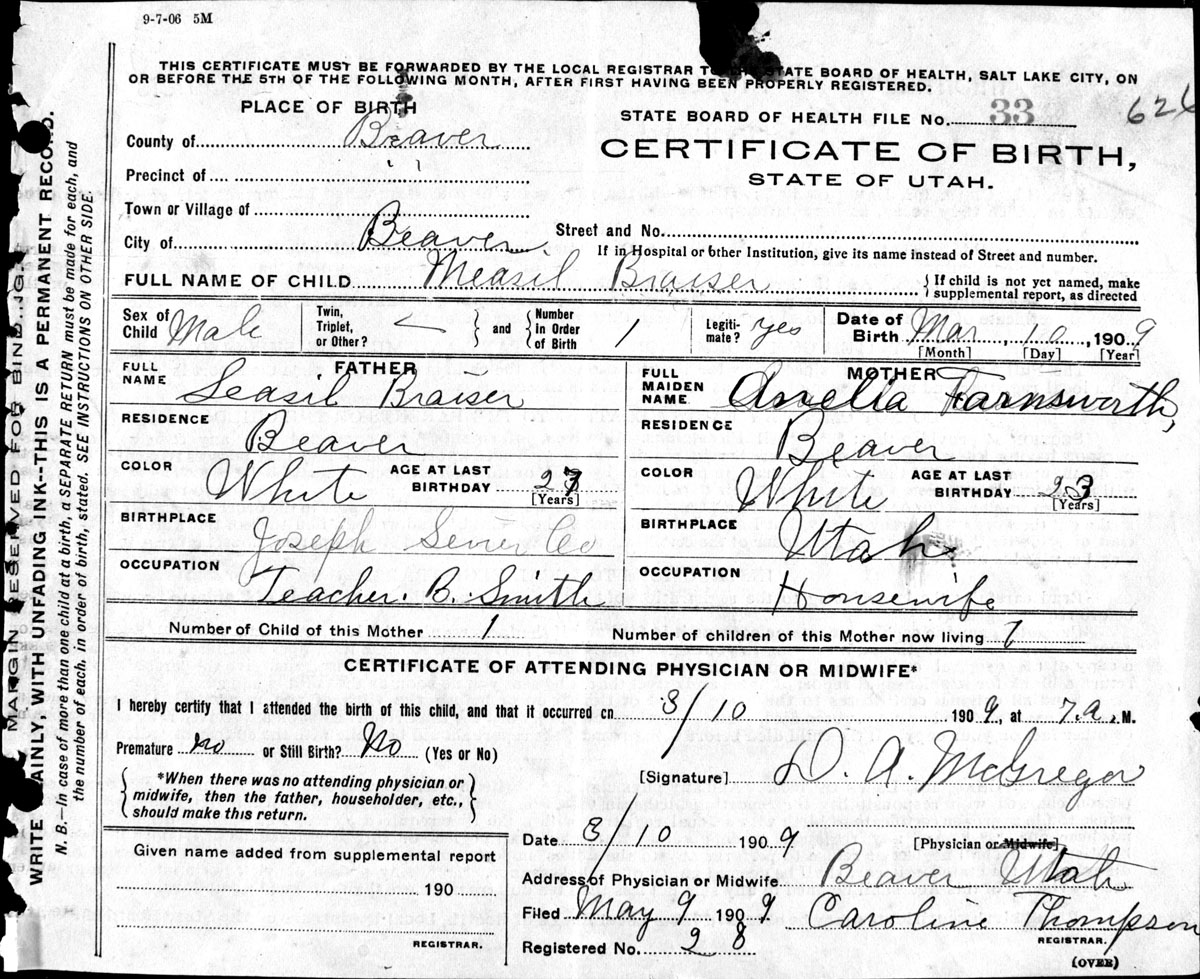 9-7-06 5M
THIS CERTIFICATE MUST BE FORWARDED BY THE LOCAL REGISTRAR TO THE STATE BOARD OF HEALTH, SALT LAKE CITY, ON
OR BEFORE THE 5TH OF THE FOLLOWING MONTH, AFTER FIRST HAVING BEEN PROPERLY REGISTERED.
PLACE OF BIRTH
STATE BOARD OF HEALTH FILE No. 33 626
County of Beaver
CERTIFICATE OF BIRTH,
STATE OF UTAH.
Precinct of
Town or Village of
Street and No.
City of Beaver
If in Hospital or other Institution, give its name instead of Street and number.
FULL NAME OF CHILD Measil Braiser
{ If child is not yet named, make
supplemental report, as directed
Sex of Child Male
Twin, Triplet, or Other? } and { Number in Order of Birth 1
Legiti-mate? yes
Date of Birth Mar 10, 1909
[Month] [Day] [Year]
FATHER
FULL NAME Seasil Braiser
RESIDENCE Beaver
COLOR White AGE AT LAST BIRTHDAY 27
[Years]
BIRTHPLACE Joseph Sevier Co
OCCUPATION Teacher. B. Smith
MOTHER
FULL MAIDEN NAME Amelia Farnsworth,
RESIDENCE Beaver
COLOR White AGE AT LAST BIRTHDAY 23
[Years]
BIRTHPLACE Utah
OCCUPATION Housewife
Number of Child of this Mother 1 Number of children of this Mother now living 1
CERTIFICATE OF ATTENDING PHYSICIAN OR MIDWIFE*
I hereby certify that I attended the birth of this child, and that it occurred on 3/10 1909, at 7 a. M.
Premature no or Still Birth? No (Yes or No)
{ *When there was no attending physician or
midwife, then the father, householder, etc.,
should make this return. }
[Signature] D. A. McGregor
Date 3/10 1909 [Physician or Midwife]
Given name added from supplemental report
190
REGISTRAR.
Address of Physician or Midwife Beaver Utah
Filed May 9 1909 Caroline Thompson
REGISTRAR.
Registered No. 28
(OVER)
MARGIN RESERVED FOR BINDING.
WRITE PLAINLY, WITH UNFADING INK--THIS IS A PERMANENT RECORD.
N. B.—In case of more than one child at a birth, a SEPARATE RETURN must be made for each, and
the number of each, in order of birth, stated. SEE INSTRUCTIONS ON OTHER SIDE.